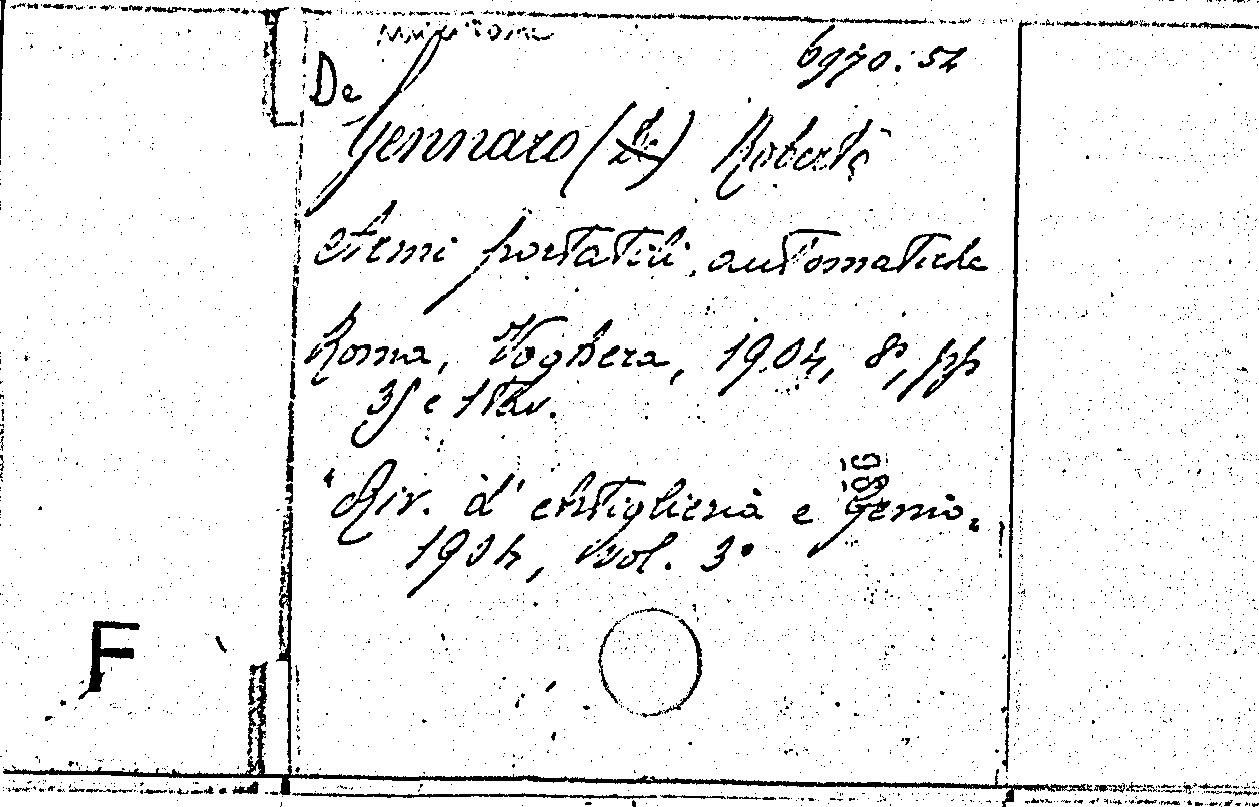 6970.52
De
Gennaro (De) Roberto
Armi portatili automatiche
Roma, Voghera, 1904, 8°, pp
35 e 1 tav.
"Riv. d'Artiglieria e Genio"
1904, vol. 3°
F